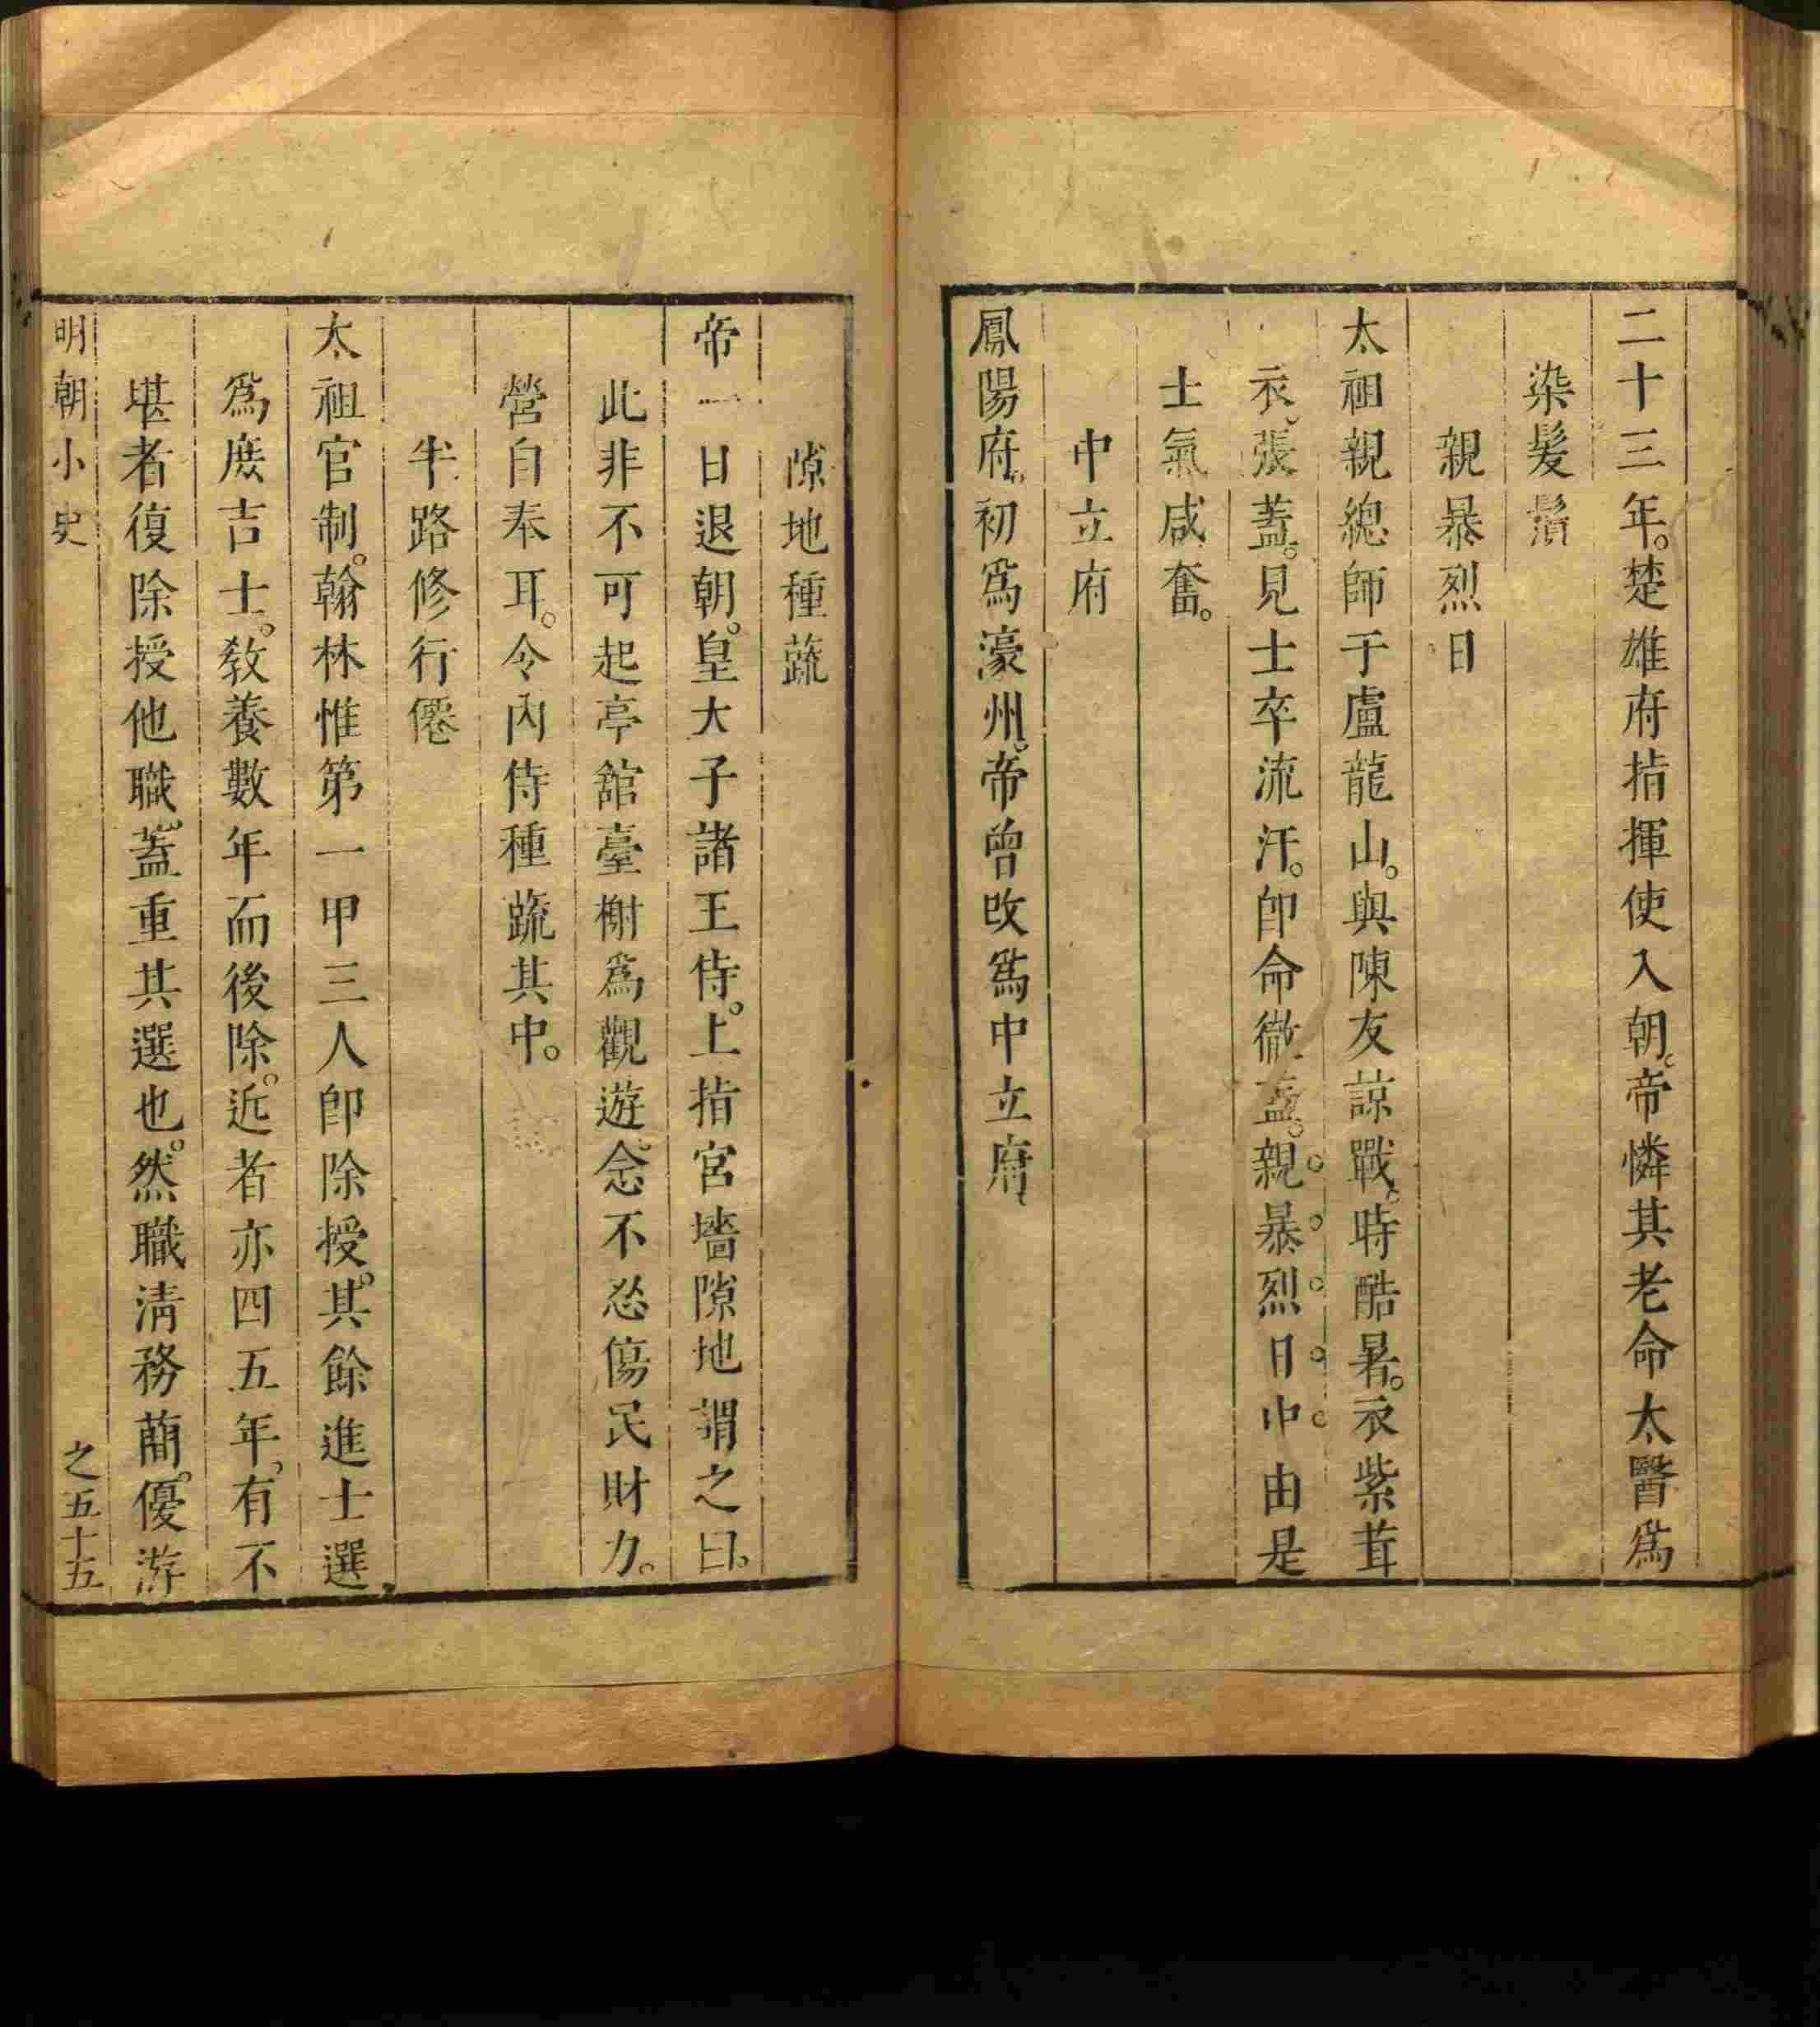 二十三年。楚雄府指揮使入朝。帝憐其老命太醫爲
染髮鬚
親暴烈日
太祖親總師于盧龍山。與陳友諒戰。時酷暑。衣紫茸
衣、張蓋。見士卒流汗。卽命徹蓋。親暴烈日中由是
士氣咸奮。
中立府
鳳陽府。初爲濠州。帝曾改爲中立府
隙地種蔬
帝一日退朝。皇太子諸王侍。上指宮墻隙地謂之曰。
此非不可起亭舘臺榭爲觀遊。念不忍傷民財力。
營自奉耳。令內侍種蔬其中。
半路修行僊
太祖官制。翰林惟第一甲三人卽除授。其餘進士選
爲庶吉士。敎養數年而後除。近者亦四五年、有不
堪者復除授他職。蓋重其選也。然職淸務蕑。優游
明朝小史
之五十五